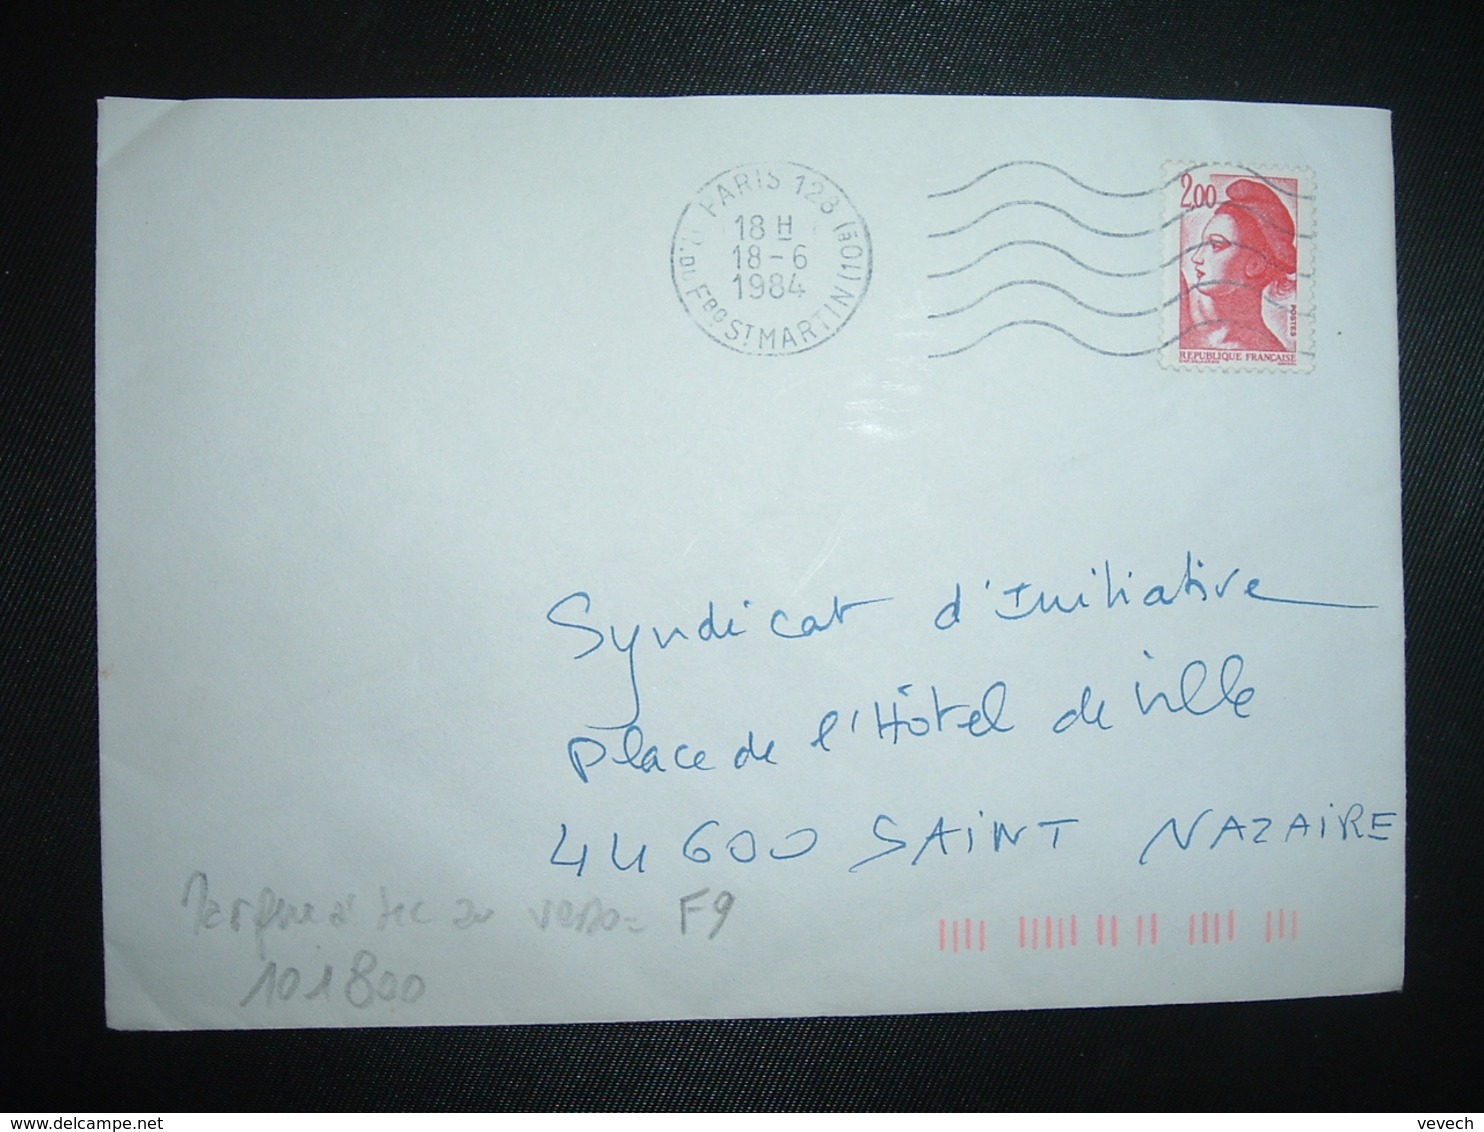 PARIS 128 (10È)
18 H
18-6
1984
R. DU FBG ST MARTIN
2,00
POSTES
REPUBLIQUE FRANÇAISE
Syndicat d'Initiative
place de l'Hôtel de ville
44600 SAINT NAZAIRE
au verso - F9
101800
delcampe.net
vevech